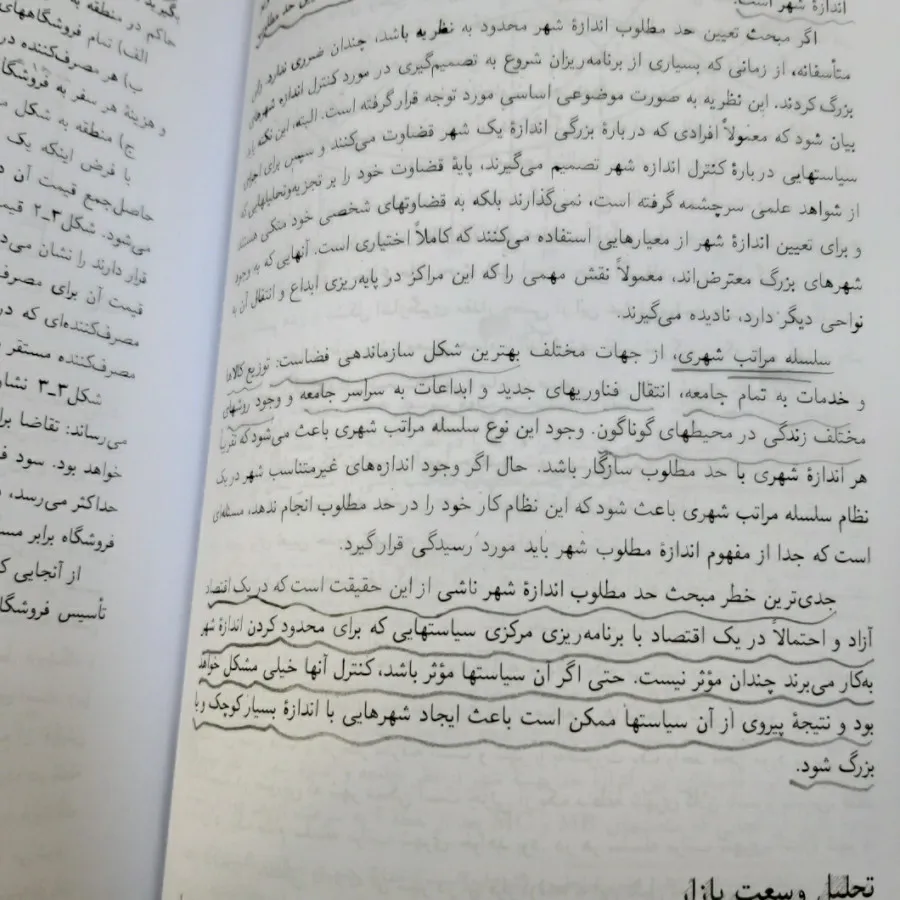 اندازهٔ شهر است.
اگر مبحث تعیین حد مطلوب اندازهٔ شهر محدود به نظریه باشد، چندان ضروری ندارد. ولی
متأسفانه، از زمانی که بسیاری از برنامه‌ریزان شروع به تصمیم‌گیری در مورد کنترل اندازه شهرهای
بزرگ کردند. این نظریه به صورت موضوعی اساسی مورد توجه قرار گرفته است. البته، این نکته باید
بیان شود که معمولاً افرادی که دربارهٔ بزرگی اندازهٔ یک شهر قضاوت می‌کنند و سپس برای اجرای
سیاستهایی دربارهٔ کنترل اندازه شهر تصمیم می‌گیرند، پایهٔ قضاوت خود را بر تجزیه‌وتحلیلهایی که
از شواهد علمی سرچشمه گرفته است، نمی‌گذارند بلکه به قضاوتهای شخصی خود متکی هستند
و برای تعیین اندازهٔ شهر از معیارهایی استفاده می‌کنند که کاملاً اختیاری است. آنهایی که به وجود
شهرهای بزرگ معترض‌اند، معمولاً نقش مهمی را که این مراکز در پایه‌ریزی ابداع و انتقال آن به
نواحی دیگر دارد، نادیده می‌گیرند.
سلسله مراتب شهری، از جهات مختلف بهترین شکل سازماندهی فضاست: توزیع کالاها
و خدمات به تمام جامعه، انتقال فناوریهای جدید و ابداعات به سراسر جامعه و وجود روشهای
مختلف زندگی در محیطهای گوناگون. وجود این نوع سلسله مراتب شهری باعث می‌شود که تقریباً
هر اندازهٔ شهری با حد مطلوب سازگار باشد. حال اگر وجود اندازه‌های غیرمتناسب شهر در یک
نظام سلسله مراتب شهری باعث شود که این نظام کار خود را در حد مطلوب انجام ندهد، مسئله‌ای
است که جدا از مفهوم اندازهٔ مطلوب شهر باید مورد رسیدگی قرار گیرد.
جدی‌ترین خطر مبحث حد مطلوب اندازهٔ شهر ناشی از این حقیقت است که در یک اقتصاد
آزاد و احتمالاً در یک اقتصاد با برنامه‌ریزی مرکزی سیاستهایی که برای محدود کردن اندازهٔ شهر
به‌کار می‌برند چندان مؤثر نیست. حتی اگر آن سیاستها مؤثر باشد، کنترل آنها خیلی مشکل خواهد
بود و نتیجهٔ پیروی از آن سیاستها ممکن است باعث ایجاد شهرهایی با اندازهٔ بسیار کوچک و یا
بزرگ شود.
تحلیل وسعت بازار
حاکم در منطقه به
الف) تمام فروشگاههای
ب) هر مصرف‌کننده در
و هزینهٔ هر سفر به فروشگاه
ج) منطقه به شکل
با فرض اینکه یک
حاصل‌جمع قیمت آن
می‌شود. شکل ۳ـ۲
قرار دارند را نشان می‌د
قیمت آن برای مصرف
مصرف‌کننده‌ای که در
مصرف‌کننده مستقر
شکل ۳ـ۳ نشا
می‌رساند: تقاضا برا
خواهد بود. سود
حداکثر می‌رسد،
فروشگاه برابر
از آنجایی ک
تأسیس فروشگا